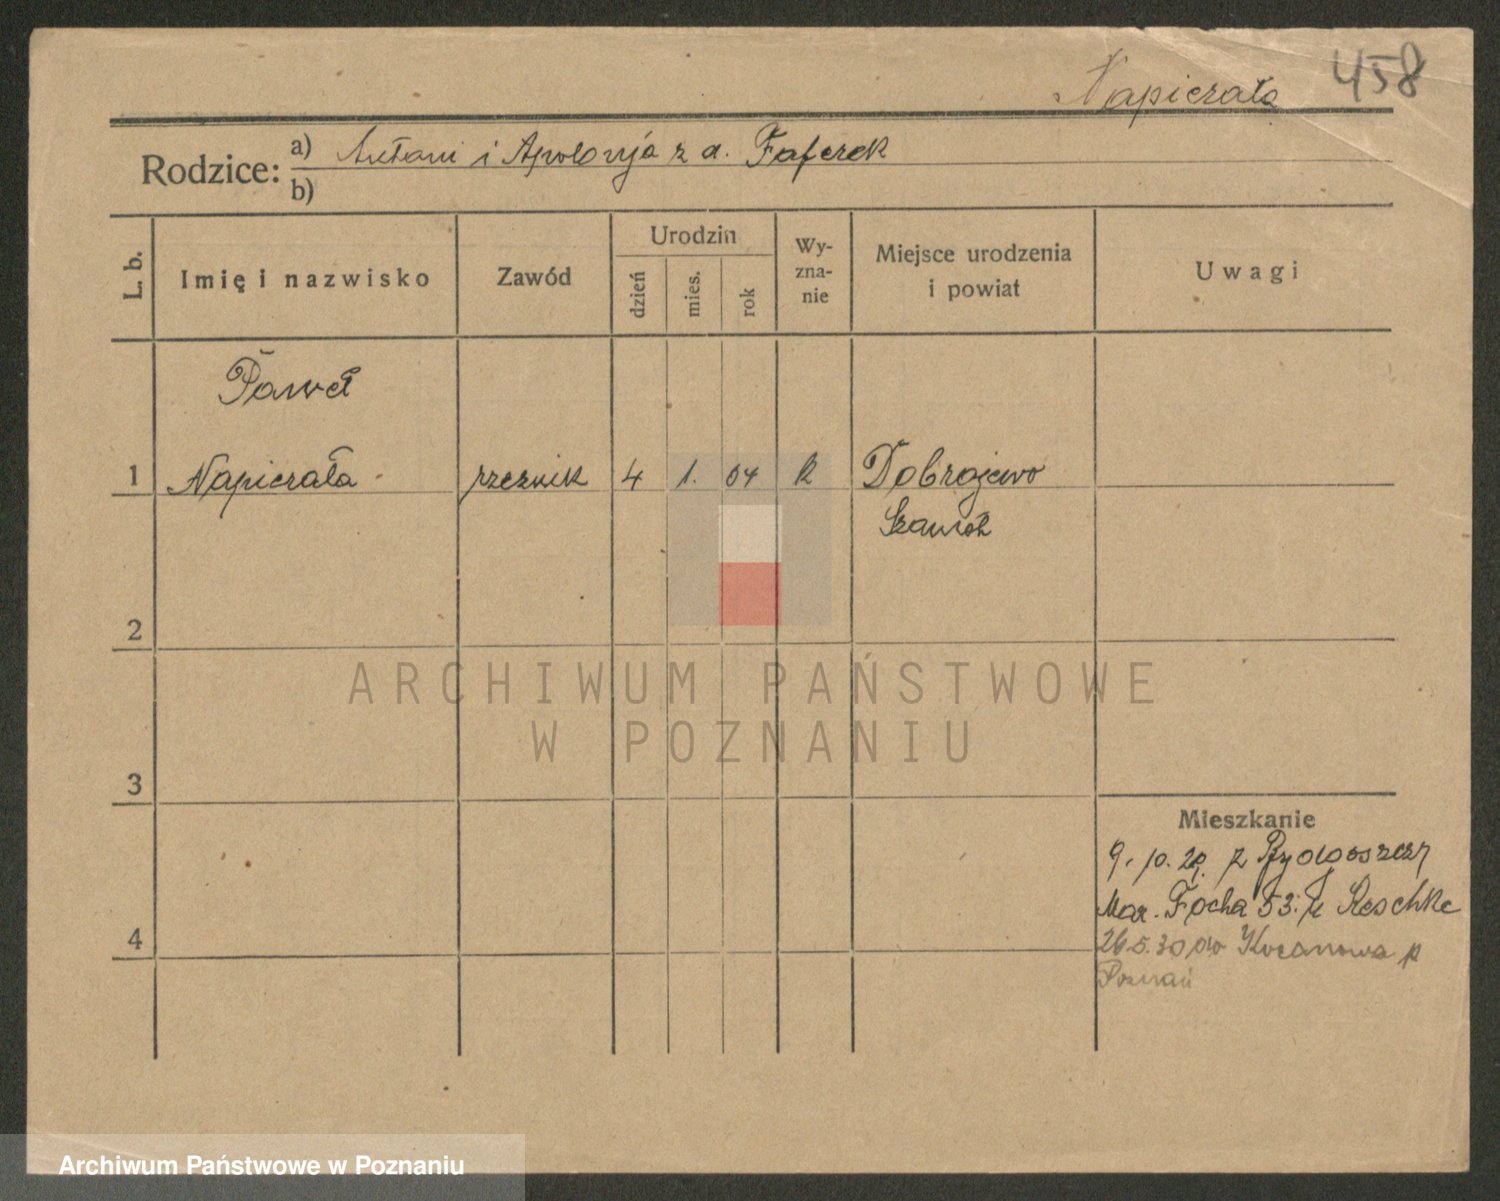 Napierała 458
Rodzice: a) Antoni i Apolonja z d.
b)
L. b.
Imię i nazwisko
Zawód
Urodzin
dzień
mies.
rok
Wy-
zna-
nie
Miejsce urodzenia
i powiat
Uwagi
Paweł
1 Napierała rzeźnik 4 1. 04 R Dobrojewo
2
ARCHIWUM PAŃSTWOWE
W POZNANIU
3
Mieszkanie
9. 10. 29. z Bydgoszczy
Mar. Focha 53. u Reschke
4
26.5.30 do p
Poznań
Archiwum Państwowe w Poznaniu